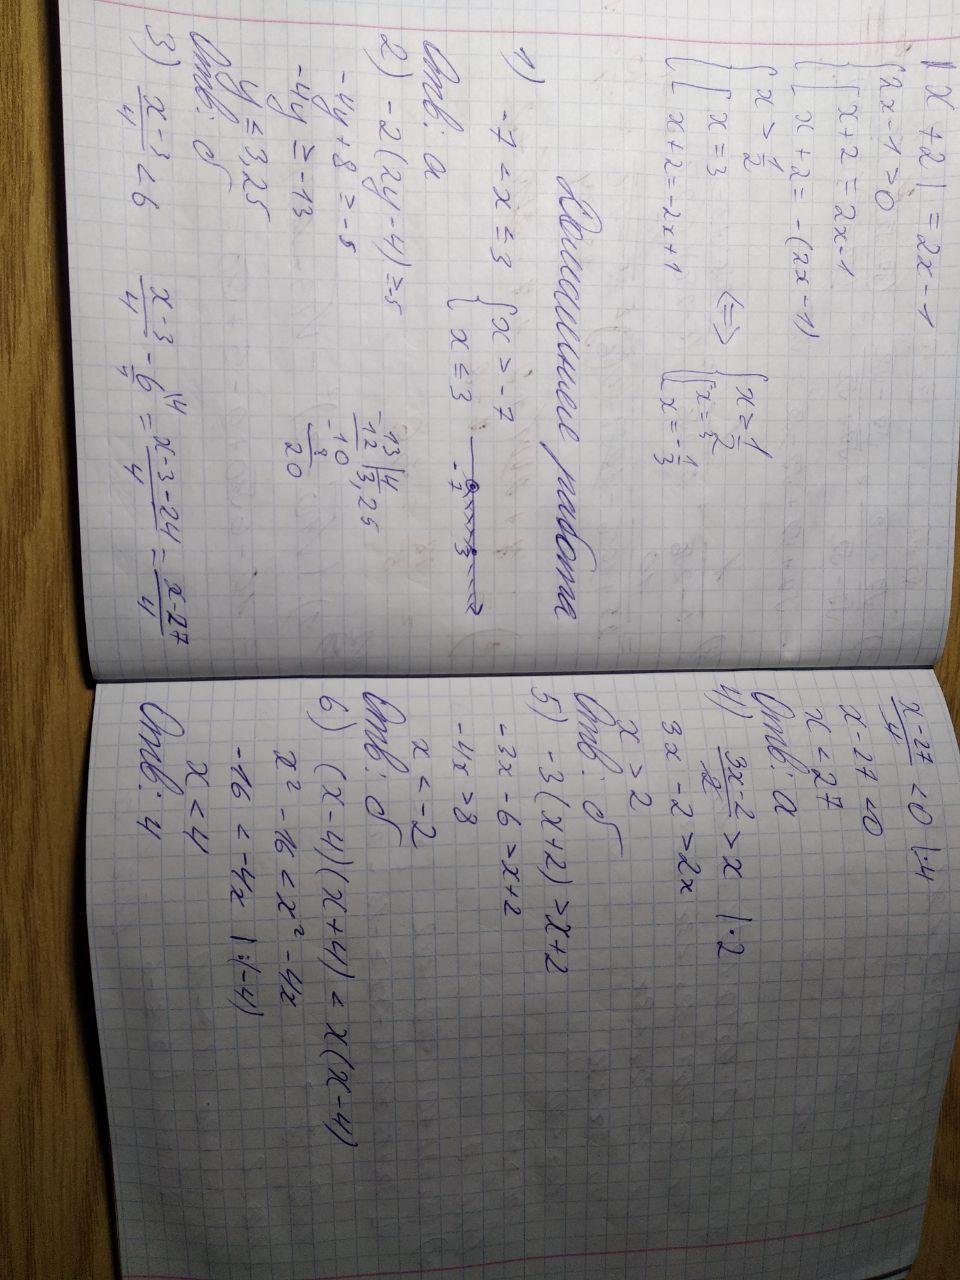 |x+2| = 2x-1
{ 2x-1>0
[ x+2=2x-1
[ x+2=-(2x-1)
{ x>1/2
[ x=3
[ x+2=-2x+1
<=>
{ x>1/2
[ x=3
[ x=-1/3
Домашнее работа
1) -7<x≤3 { x>-7
{ x≤3
-7 3
Отв: а
2) -2(2y-4)≥-5
-4y+8≥-5
-4y≥-13
y≤3,25
Отв: б
13|4
12|3,25
-10
8
20
3) x-3/4<6 x-3/4 - 6/1 = x-3-24/4 = x-27/4
x-27/4<0 |·4
x-27<0
x<27
Отв: а
4) 3x-2/2>x |·2
3x-2>2x
x>2
Отв: б
5) -3(x+2)>x+2
-3x-6>x+2
-4x>8
x<-2
Отв: б
6) (x-4)(x+4)<x(x-4)
x²-16<x²-4x
-16<-4x |:(-4)
x<4
Отв: 4